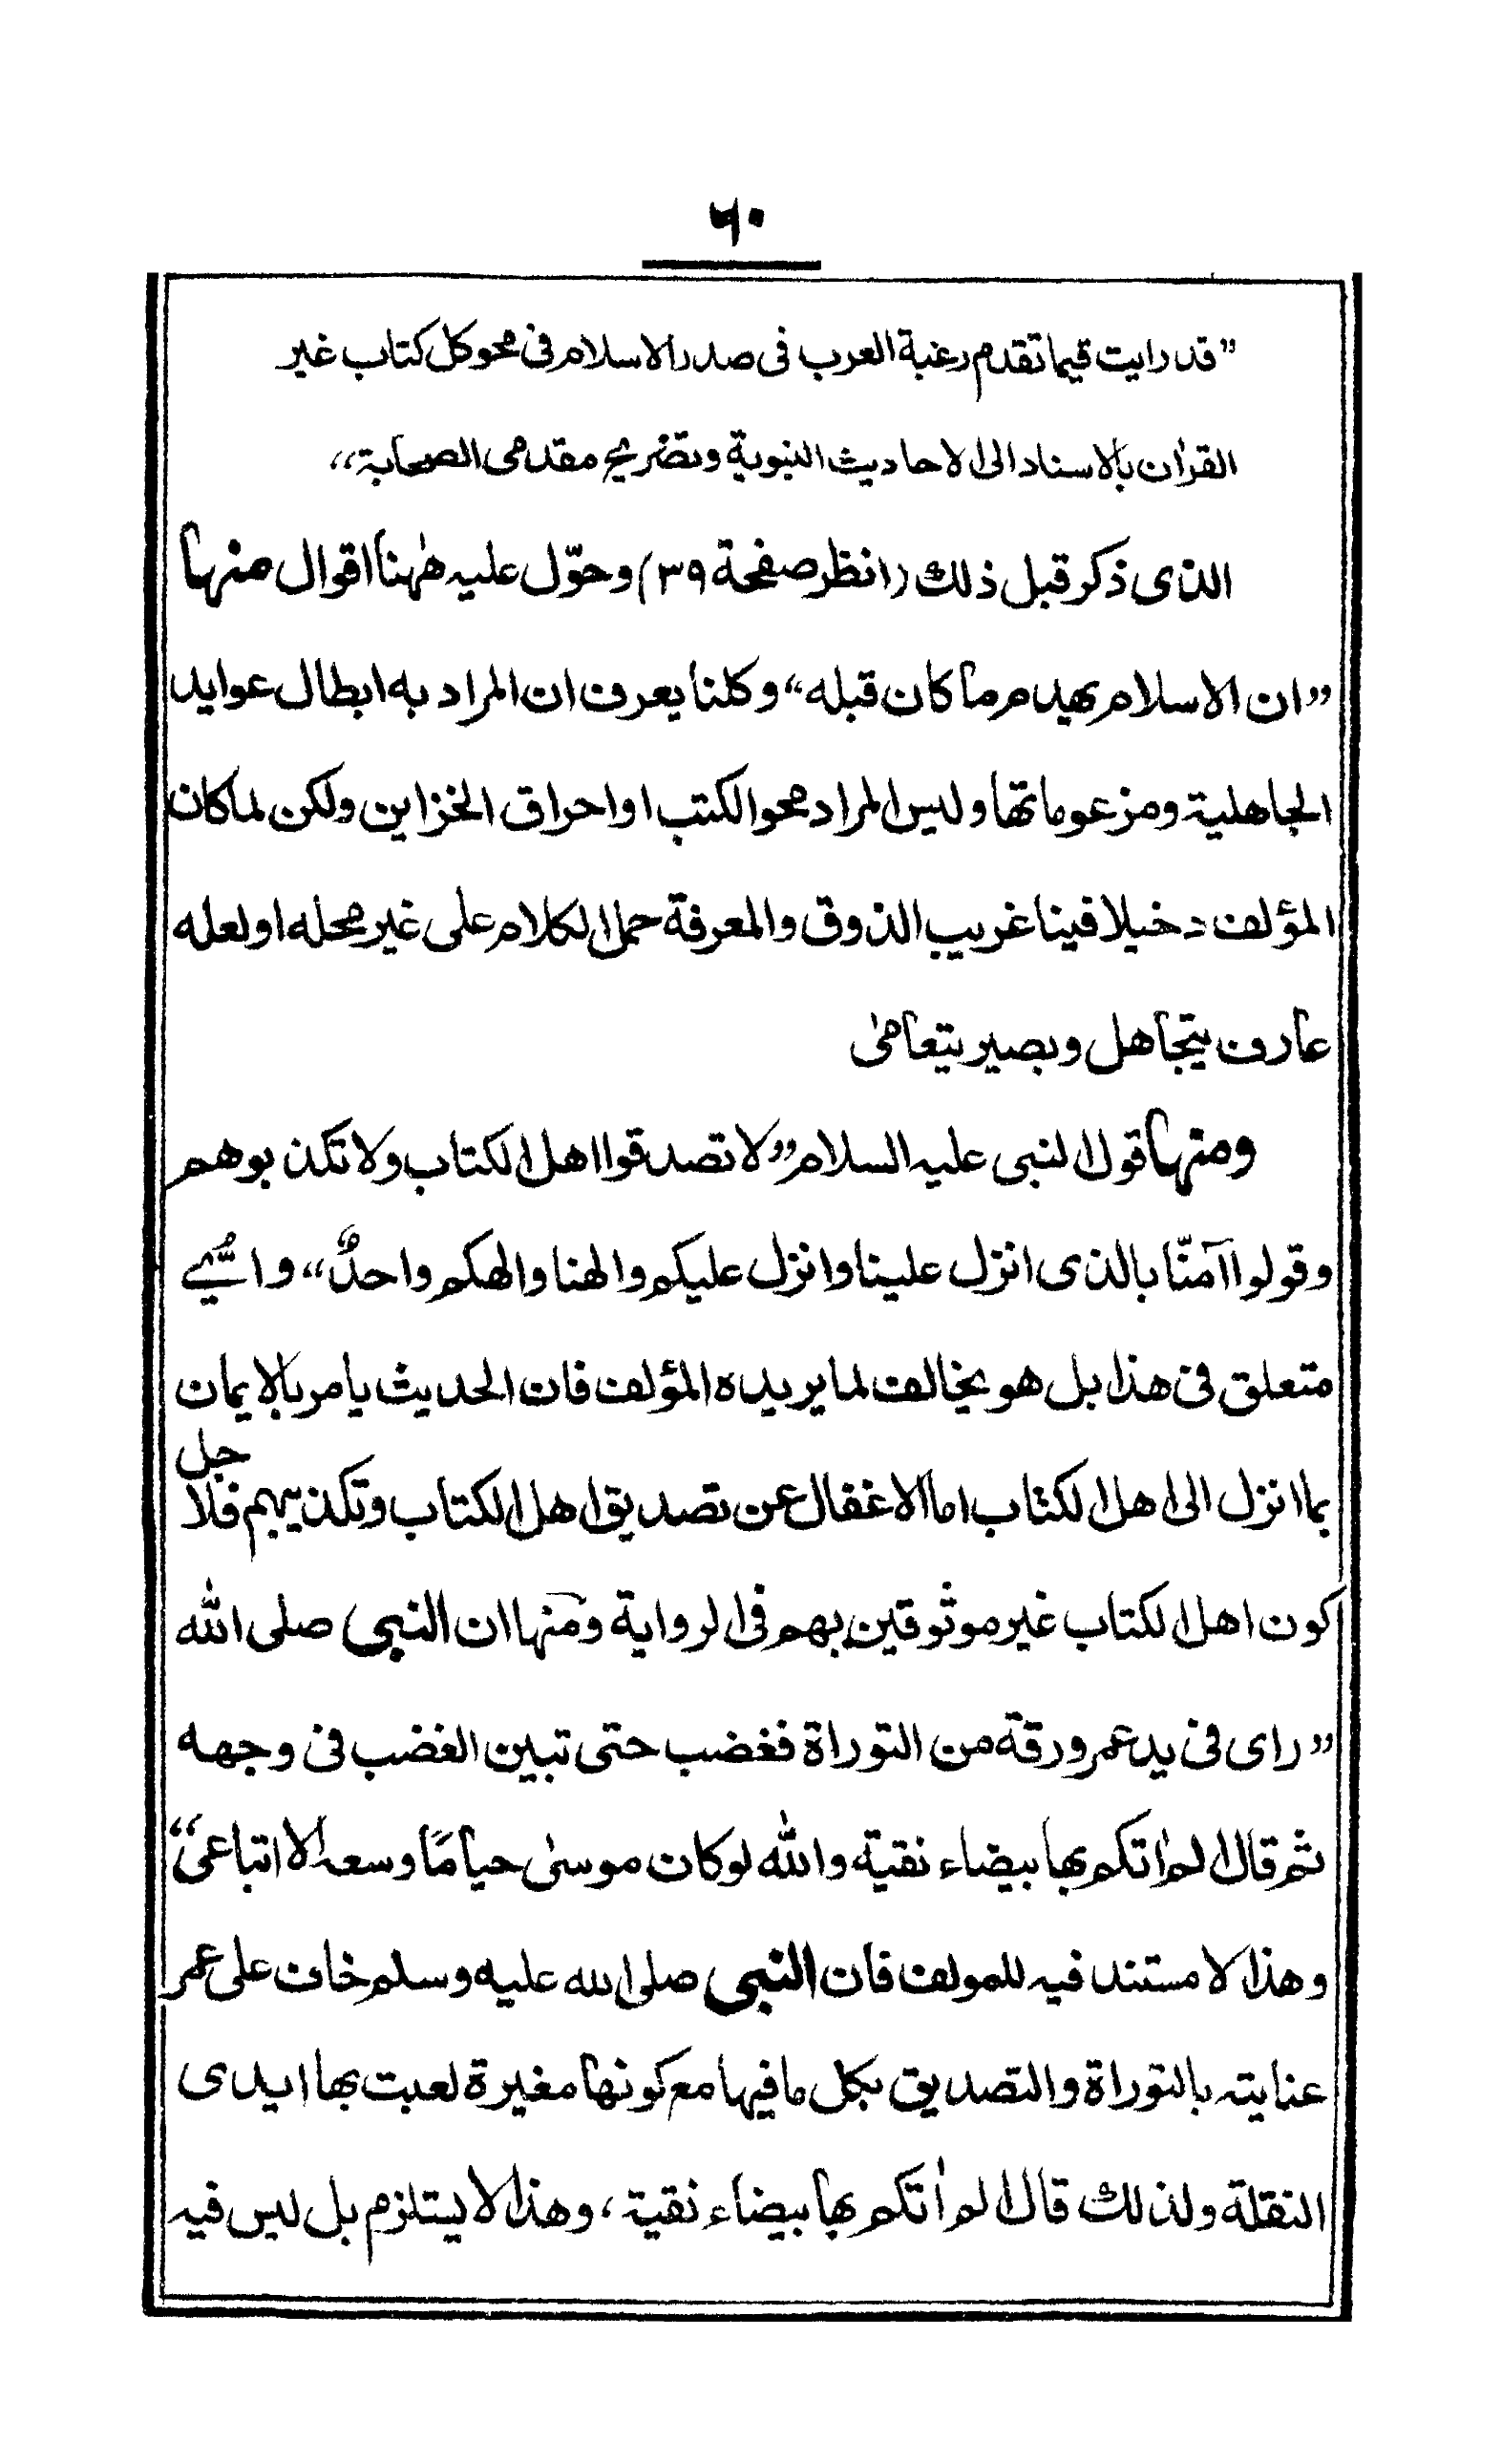 ٦٠
”قد رايت قيما تقدم رغبة العرب فى صدر الاسلام فى محو كل كتاب غير
القرٰان بالاسناد الى الاحاديث النبوية وتضريح مقدمى الصحابة،،
الذى ذكر قبل ذلك (انظر صفحة ٣٩) وحوّل عليه هٰهنا اقوال منها
”ان الاسلام يهدم ما كان قبله“ وكلنا يعرف ان المراد به ابطال عوايد
الجاهلية ومزعوماتها وليس المراد محو الكتب او احراق الخزاين ولكن لما كان
المؤلف دخيلا فينا غريب الذوق والمعرفة حمل الكلام على غير محله او لعله
عارف يتجاهل وبصير يتعامىٰ
ومنها قول النبى عليه السلام ”لا تصدقوا اهل الكتاب ولا تكذبوهم
وقولوا آمنّا بالذى انزل علينا وانزل عليكم والهنا والهكم واحدٌ،، واىُّ شيے
متعلق فى هذا بل هو يخالف لما يريده المؤلف فان الحديث يامر بالايمان
بما انزل الى اهل الكتاب اما الاغفال عن تصديق اهل الكتاب وتكذيبهم فلاجل
كون اهل الكتاب غير موثوقين بهم فى الرواية ومنها ان النبى صلى الله
”راى فى يد عمر ورقة من التوراة فغضب حتى تبين الغضب فى وجهه
ثم قال الم اٰتكم بها بيضاء نقية والله لو كان موسىٰ حيا مًا وسعه الا اتباعى“
وهذا لا مستند فيه للمولف فان النبى صلى الله عليه وسلم خاف على عمر
عنايته بالتوراة والتصديق بكل ما فيها مع كونها مغيرة لعبت بها ايدى
النقلة ولذلك قال الم اٰتكم بها بيضاء نقية، وهذا لا يستلزم بل ليس فيه